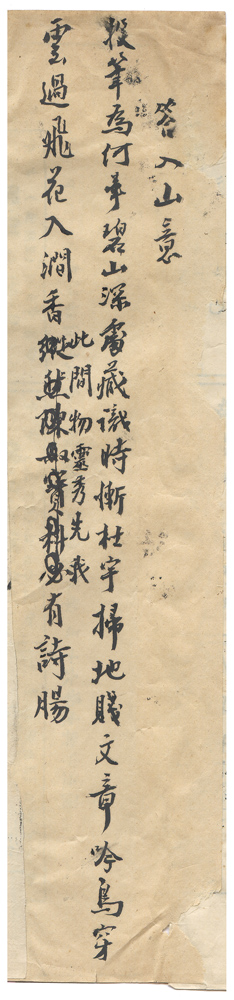 荅入山意
投筆為何事碧山深處藏識時慚杜宇掃地賤文章吟鳥穿
此間物靈秀先我
雲過飛花入澗香縱然陳叔寶料必有詩腸